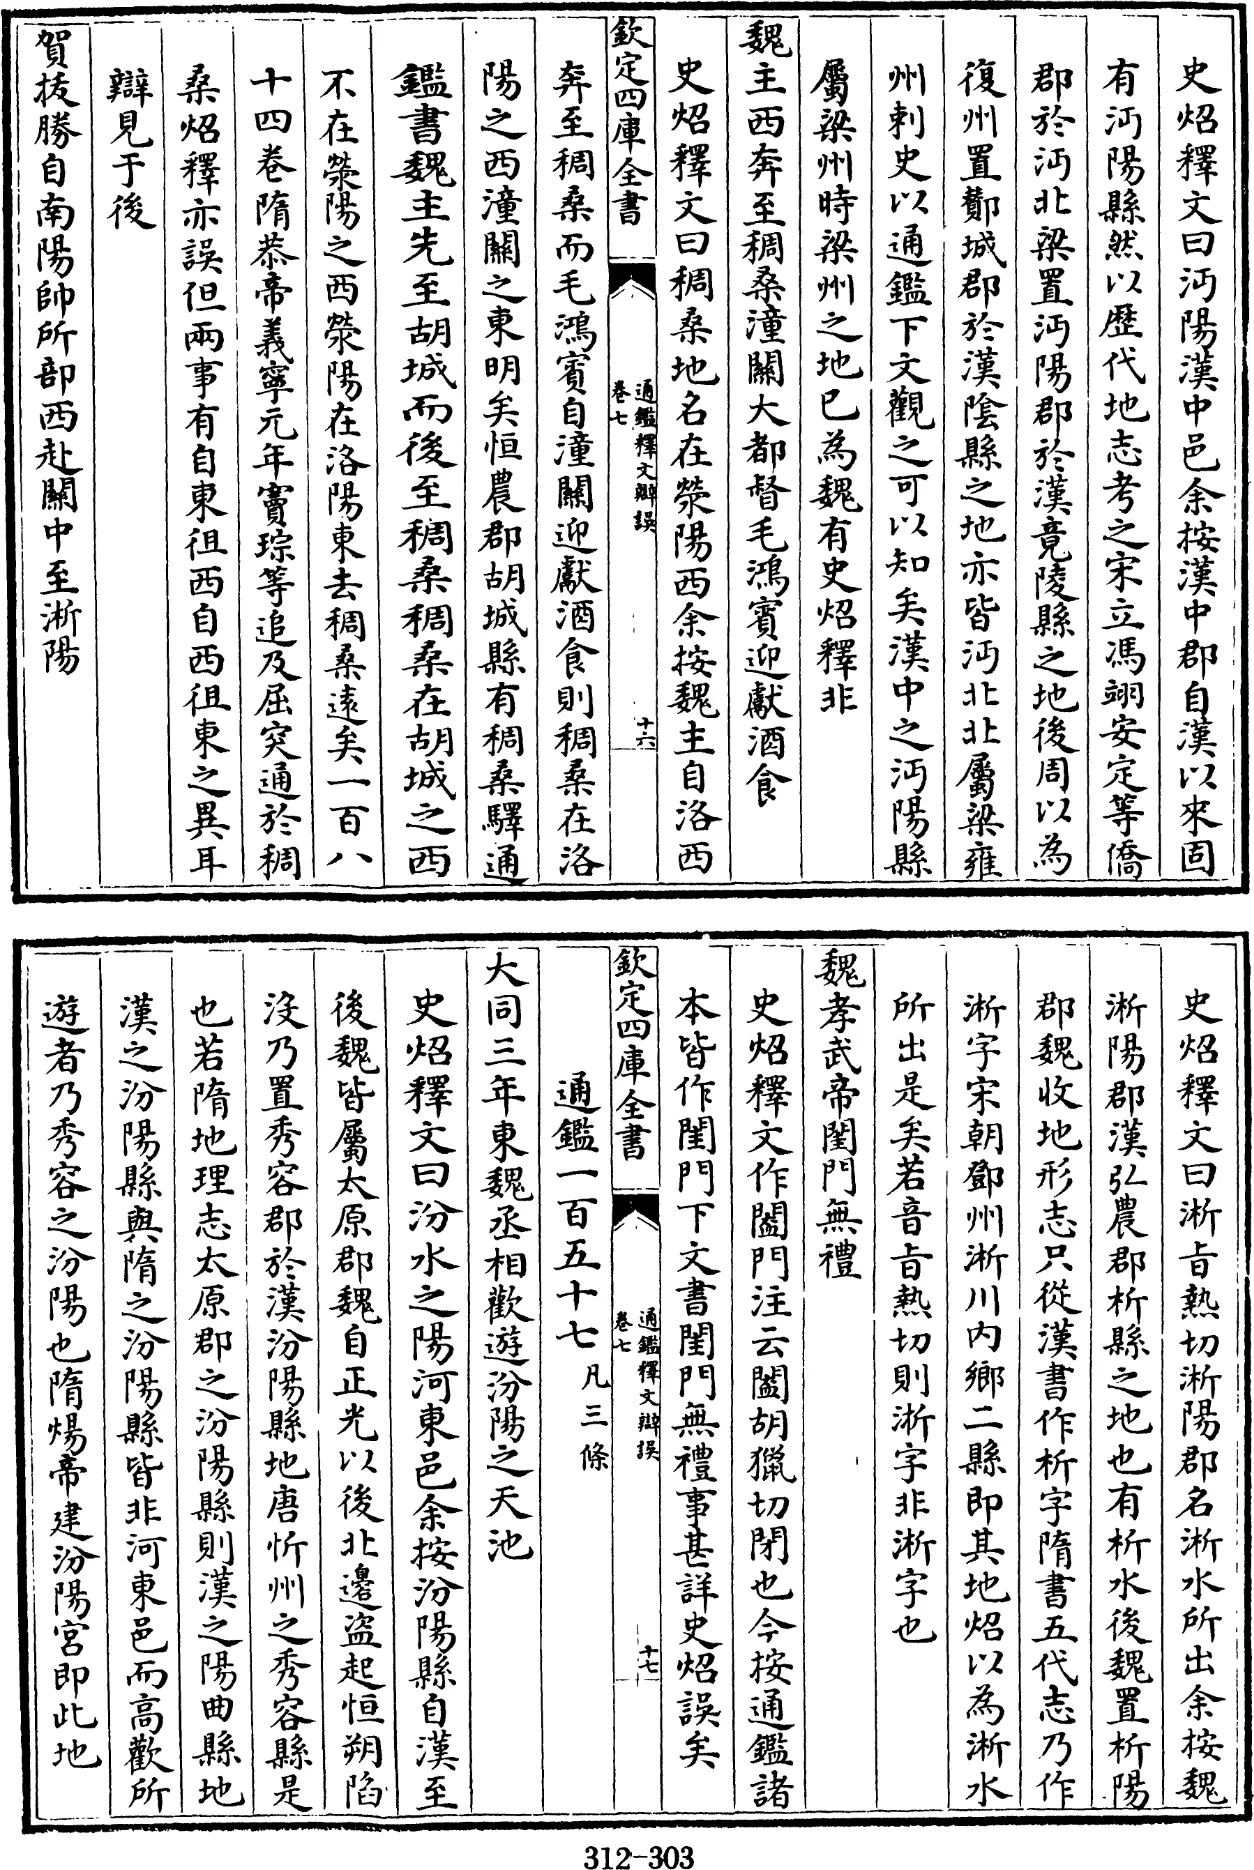 史炤釋文曰沔陽漢中邑余按漢中郡自漢以來固
有沔陽縣然以歷代地志考之宋立馮翊安定等僑
郡於沔北梁置沔陽郡於漢竟陵縣之地後周以為
復州置酇城郡於漢陰縣之地亦皆沔北北屬梁雍
州刺史以通鑑下文觀之可以知矣漢中之沔陽縣
屬梁州時梁州之地已為魏有史炤釋非
魏主西奔至稠桑潼關大都督毛鴻賓迎獻酒食
史炤釋文曰稠桑地名在滎陽西余按魏主自洛西
欽定四庫全書
通鑑釋文辯誤
卷七
十六
奔至稠桑而毛鴻賓自潼關迎獻酒食則稠桑在洛
陽之西潼關之東明矣恒農郡胡城縣有稠桑驛通
鑑書魏主先至胡城而後至稠桑稠桑在胡城之西
不在滎陽之西滎陽在洛陽東去稠桑逺矣一百八
十四卷隋恭帝義寧元年竇琮等追及屈突通於稠
桑炤釋亦誤但兩事有自東徂西自西徂東之異耳
辯見于後
賀拔勝自南陽帥所部西赴關中至淅陽
史炤釋文曰淅㫖熱切淅陽郡名淅水所出余按魏
淅陽郡漢弘農郡析縣之地也有析水後魏置析陽
郡魏收地形志只從漢書作析字隋書五代志乃作
淅字宋朝鄧州淅川内鄉二縣即其地炤以為淅水
所出是矣若音㫖熱切則淅字非淅字也
魏孝武帝閨門無禮
史炤釋文作闔門注云闔胡獵切閉也今按通鑑諸
本皆作閨門下文書閨門無禮事甚詳史炤誤矣
欽定四庫全書
通鑑釋文辯誤
卷七
十七
通鑑一百五十七凡三條
大同三年東魏丞相歡遊汾陽之天池
史炤釋文曰汾水之陽河東邑余按汾陽縣自漢至
後魏皆屬太原郡魏自正光以後北邊盜起恒朔陷
沒乃置秀容郡於漢汾陽縣地唐忻州之秀容縣是
也若隋地理志太原郡之汾陽縣則漢之陽曲縣地
漢之汾陽縣與隋之汾陽縣皆非河東邑而高歡所
遊者乃秀容之汾陽也隋煬帝建汾陽宮即此地
312-303